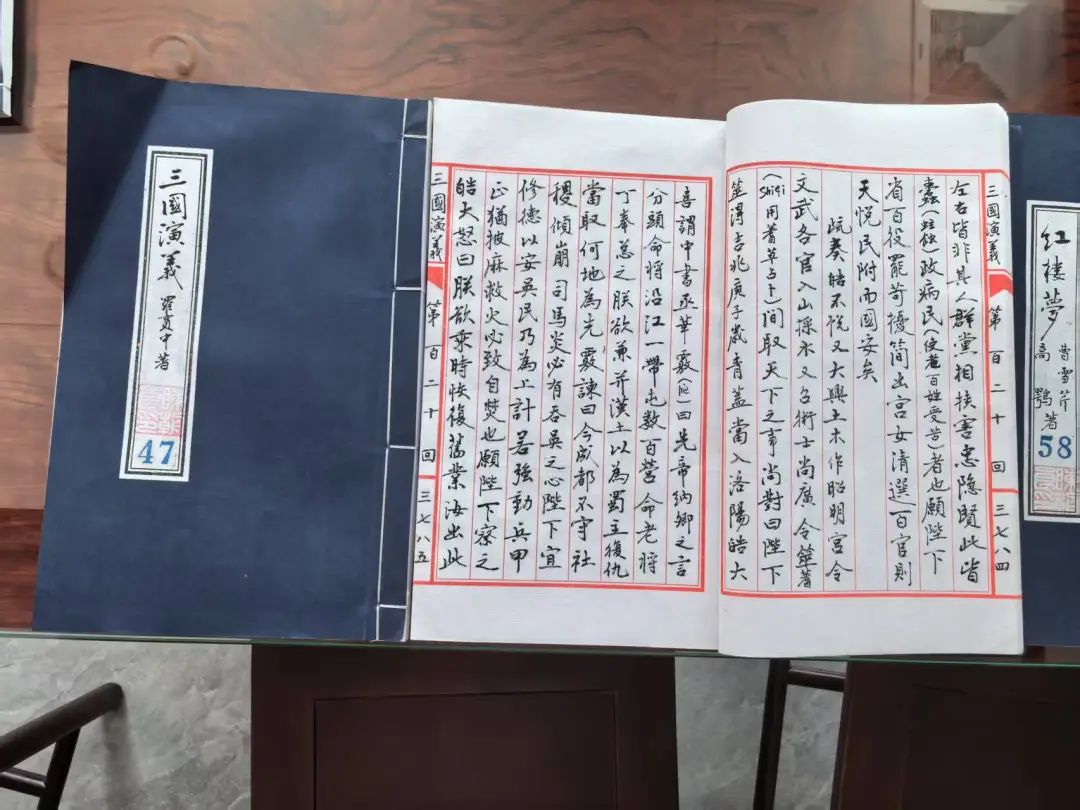 三國演義
羅貫中著
47
左右皆非其人群黨相挟害忠隐賢此皆
蠹(蛀蝕)政病民(使老百姓受苦)者也願陛下
省百役罷苛擾簡出宫女清選百官則
天悦民附而國安矣
疏奏皓不悦又大興土木作昭明宫令
文武各官入山採木又召術士尚廣令筮蓍
(Shiqi用蓍草占卜)間取天下之事尚對曰陛下
筮得吉兆庚子歲青蓋當入洛陽皓大
三國演義 第百二十回 三七八四
喜謂中書丞華覈曰先帝納卿之言
分頭命將沿江一帶屯数百營命老将
丁奉总之朕欲兼并漢土以為蜀主復仇
當取何地為先覈諫曰今成都不守社
稷傾崩司馬炎必有吞吳之心陛下宜
修德以安吳民乃為上計若強動兵甲
正猶披麻救火必致自焚也願陛下察之
皓大怒曰朕欲乘時恢復舊業出此
三國演義 第百二十回 三七八五
红楼夢
曹雪芹
高鶚著
58